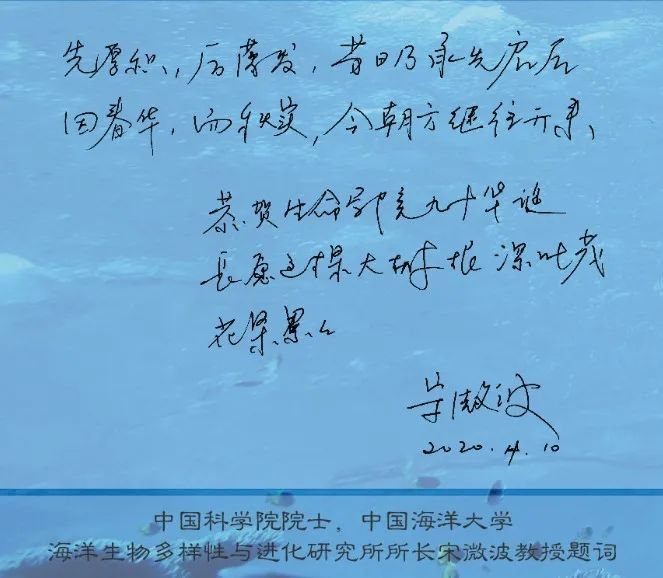 先厚积,后薄发,昔日乃承先启后
因春华,而秋实,今朝方继往开来
恭贺生命学院九十华诞
长愿这棵大树根深叶茂
花果累累
宋微波
2020.4.10
中国科学院院士,中国海洋大学
海洋生物多样性与进化研究所所长宋微波教授题词